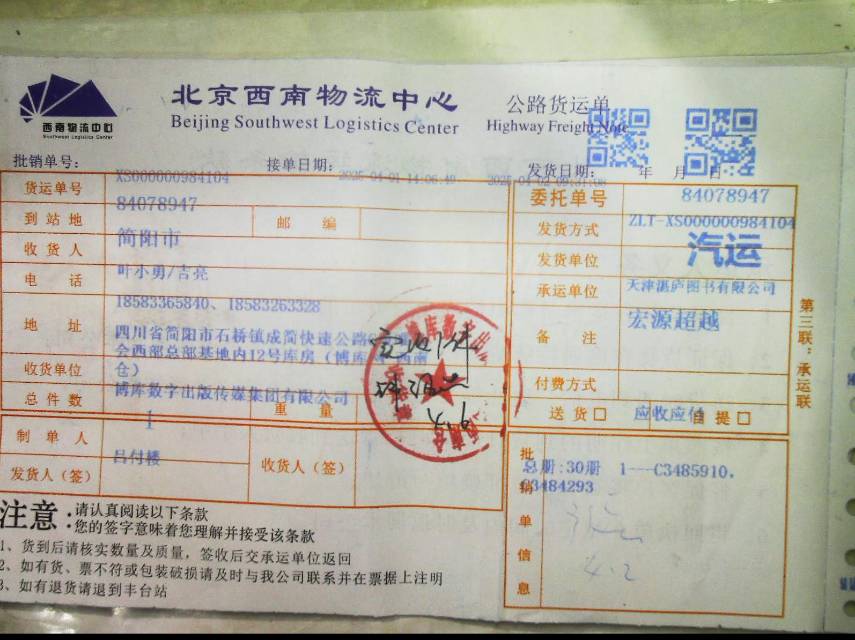 西南物流中心
Southwest Logistics Center
北京西南物流中心
Beijing Southwest Logistics Center
公路货运单
Highway Freight Note
批销单号：
XS000000984104
接单日期：
2025-04-01 14:06:49
发货日期： 年 月 日
货运单号
84078947
委托单号
84078947
到站地
简阳市
邮编
发货方式
ZLT-XS000000984104
汽运
收货人
叶小勇/吉亮
发货单位
天津湛庐图书有限公司
电话
18583365840、18583263328
承运单位
宏源超越
地址
四川省简阳市石桥镇成简快速公路
会西部总部基地内12号库房（博库
仓）
备注
收货单位
博库数字出版传媒集团有限公司
付费方式
应收应付
总件数
1
重量
送货□ 自提□
制单人
吕付楼
发货人（签）
收货人（签）
批销单信息
总册:30册 1---C3485910.
C3484293
4.6
4.2
第三联：承运联
注意：
请认真阅读以下条款
您的签字意味着您理解并接受该条款
1、货到后请核实数量及质量，签收后交承运单位返回
2、如有货、票不符或包装破损请及时与我公司联系并在票据上注明
3、如有退货请退到丰台站